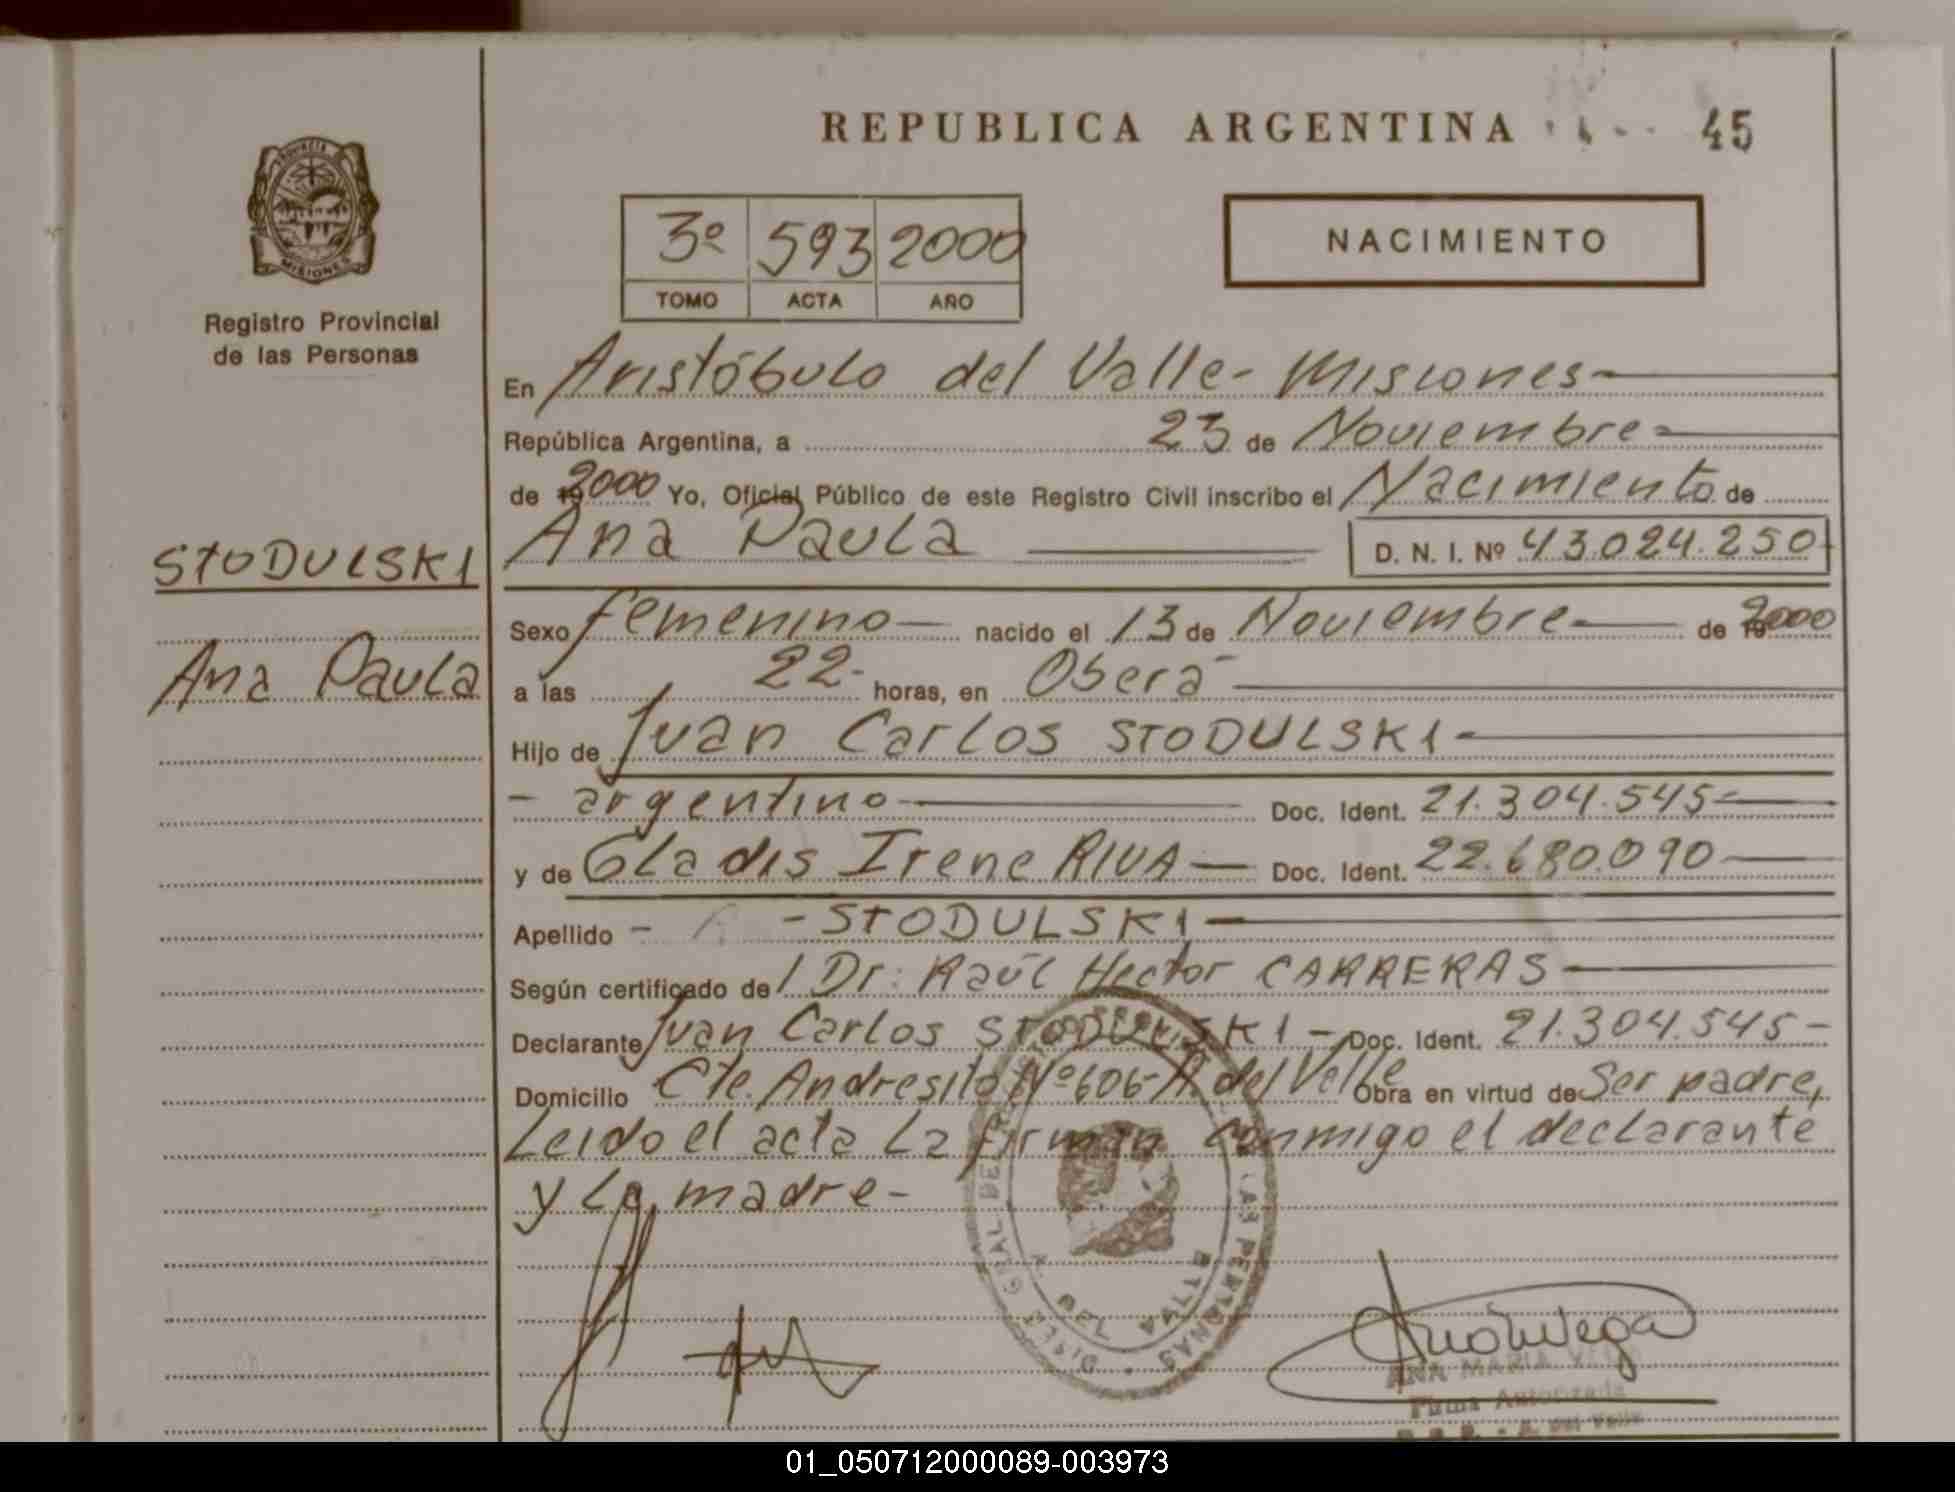 REPUBLICA ARGENTINA 45
PROVINCIA
MISIONES
Registro Provincial
de las Personas
3º 593 2000
TOMO ACTA AÑO
NACIMIENTO
En Aristóbulo del Valle - Misiones
República Argentina, a 23 de Noviembre
de 2000 Yo, Oficial Público de este Registro Civil inscribo el Nacimiento de
Ana Paula D. N. I. Nº 43.024.250
STODULSKI
Sexo femenino nacido el 13 de Noviembre de 2000
Ana Paula
a las 22 horas, en Oberá
Hijo de Juan Carlos STODULSKI
- argentino Doc. Ident. 21.304.545
y de Gladis Irene RIVA Doc. Ident. 22.680.090
Apellido - - STODULSKI
Según certificado del Dr: Raúl Hector CARRERAS
Declarante Juan Carlos STODULSKI - Doc. Ident. 21.304.545 -
Domicilio Cte. Andresito Nº 606 - A. del Valle Obra en virtud de Ser padre,
Leido el acta la firman conmigo el declarante
y la madre -
A. DEL VALLE
ANA MARIA VEGA
Firma Autorizada
A. del Valle
01_050712000089-003973